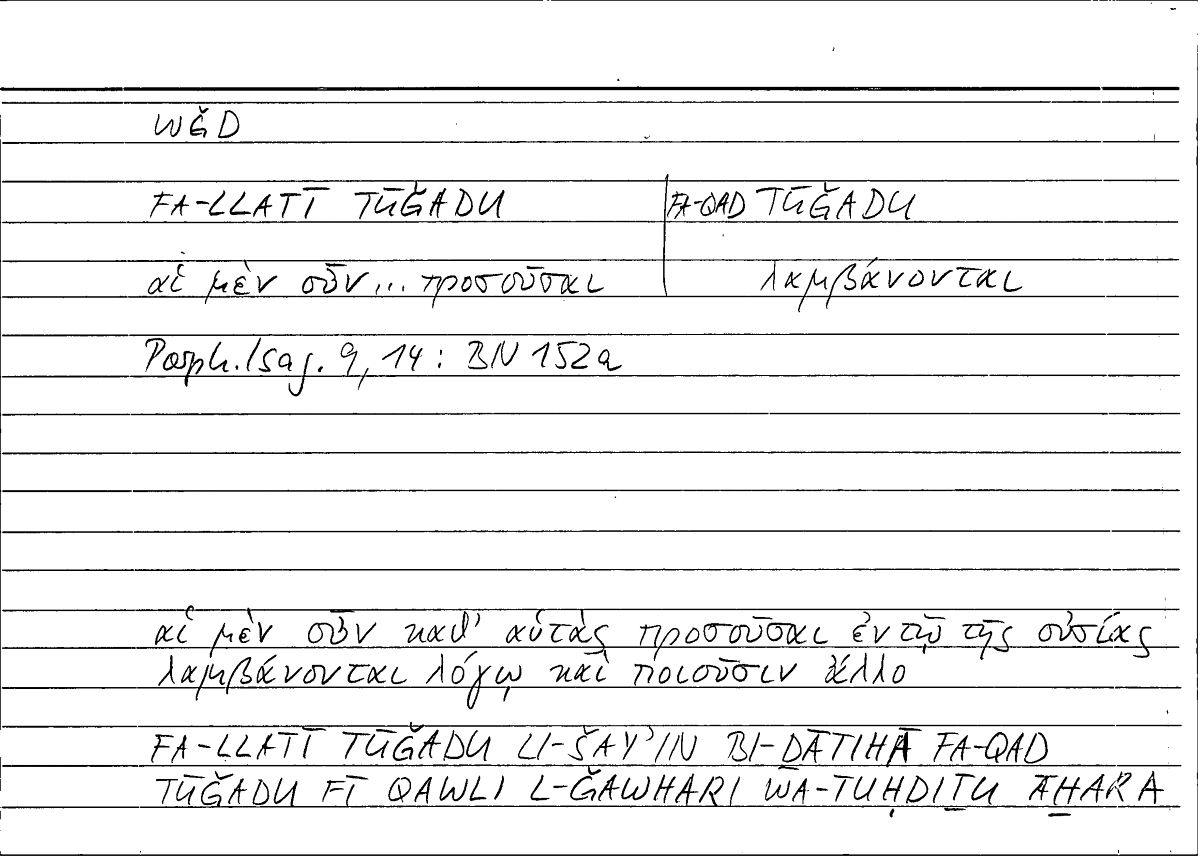 WǦD
FA-LLATĪ TŪǦADU FA-QAD TŪǦADU
αἱ μὲν οὖν... προσοῦσαι λαμβάνονται
Porph. Isag. 9, 14: BN 152a
αἱ μὲν οὖν καθ' αὑτὰς προσοῦσαι ἐν τῷ τῆς οὐσίας
λαμβάνονται λόγῳ καὶ ποιοῦσιν ἄλλο
FA-LLATĪ TŪǦADU LI-ŠAYʾIN BI-ḎĀTIHĀ FA-QAD
TŪǦADU FĪ QAWLI L-ǦAWHARI WA-TUḤDIṮU ĀḪARA